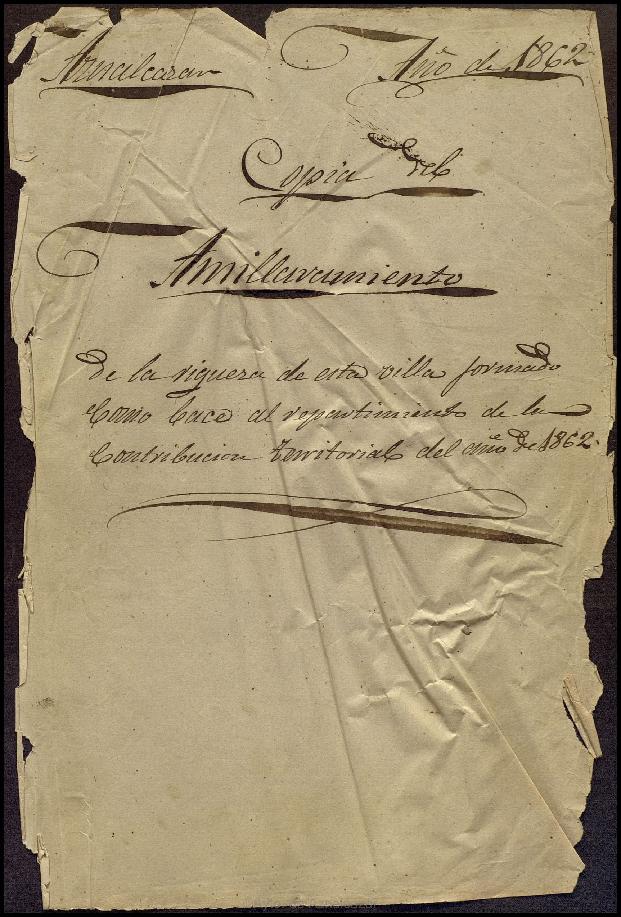 Aznalcazar Año de 1862
Copia del
Amillaramiento
de la riqueza de esta villa formado
como bace al repartimiento de la
Contribucion territorial del año de 1862.